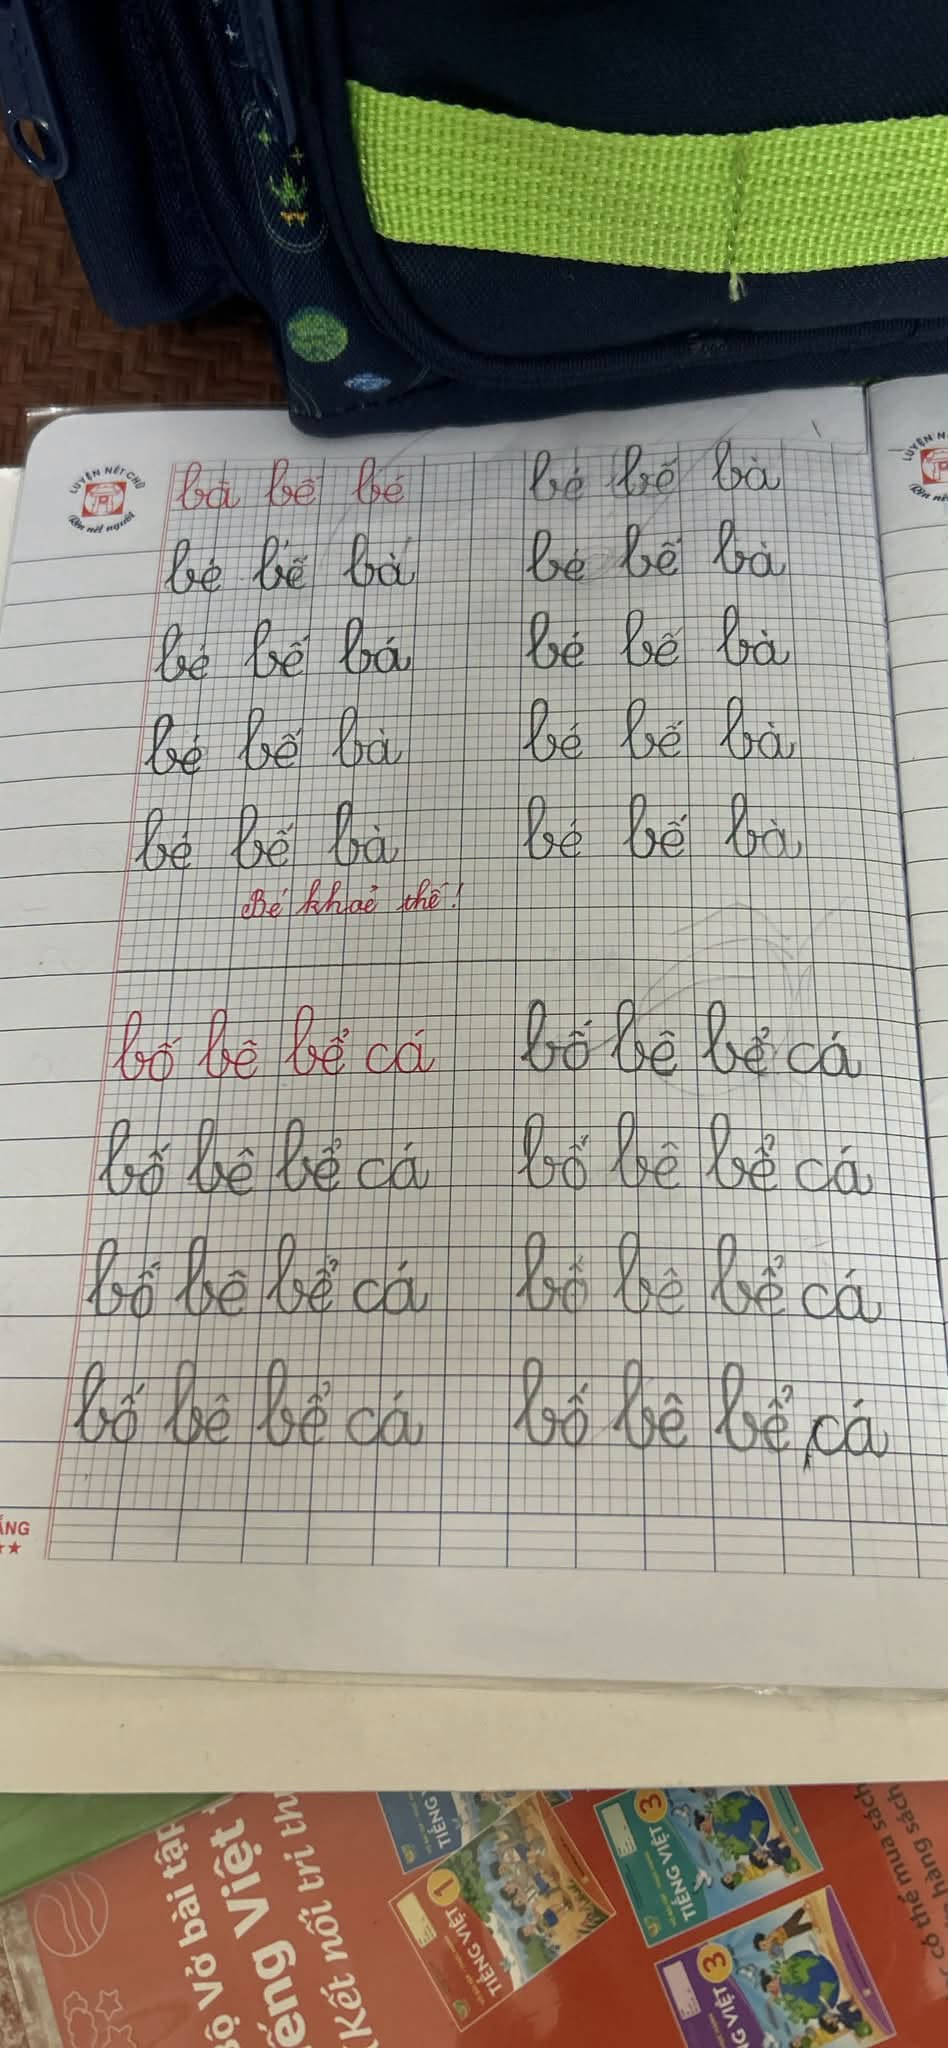 LUYỆN NÉT CHỮ
Rèn nét người
LUYỆN N
Rèn né
bà bế bé bé bế bà
bé bế bà bé bế bà
bé bế bá bé bế bà
bé bế bà bé bế bà
bé bế bà bé bế bà
Bé khoẻ thế!
bố bê bể cá bố bê bể cá
bố bê bể cá bố bê bể cá
bố bê bể cá bố bê bể cá
bố bê bể cá bố bê bể cá
ẴNG
Vở bài tập
iếng Việt
Kết nối tri th
TIẾNG VIỆT
1
TIẾNG
TIẾNG VIỆT
3
NG VIỆT
3
có thể mua sách
hàng sách